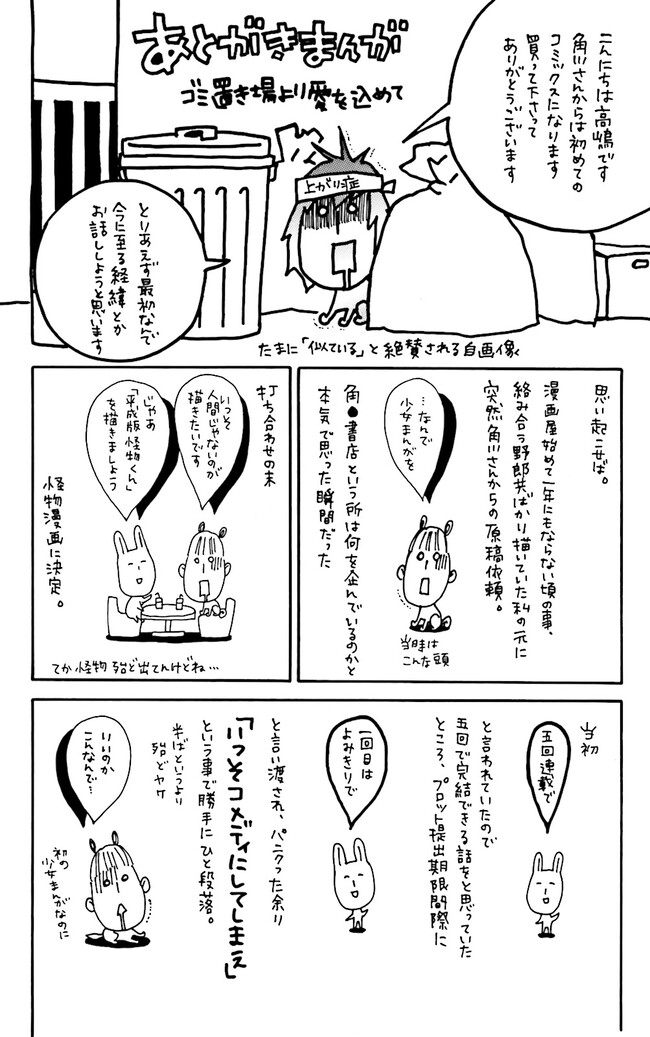 あとがきまんが
ゴミ置き場より愛を込めて
こんにちは高嶋です
角川さんからは初めての
コミックスになります
買って下さって
ありがとうございます
上がり症
とりあえず最初なんで
今に至る経緯とか
お話ししようと思います
たまに「似ている」と絶賛される自画像
思い起こせば。
漫画屋始めて一年にもならない頃の事、
絡み合う野郎共ばかり描いていた私の元に
突然角川さんからの原稿依頼。
…なんで
少女まんがを
当時は
こんな頭
角●書店という所は何を企んでいるのかと
本気で思った瞬間だった
打ち合わせの末
いっそ
人間じゃないのが
描きたいです
じゃあ
「平成版怪物くん」
を描きましょう
怪物漫画に決定。
てか怪物 殆ど出てんけどね…
当初
五回連載で
と言われていたので
五回で完結できる話をと思っていた
ところ、プロット提出期限間際に
一回目は
よみきりで
と言い渡され、パニクった余り
「いっそコメディにしてしまえ」
という事で勝手にひと段落。
半ばというより
殆どヤケ
いいのか
こんなんで…
初の
少女まんがなのに